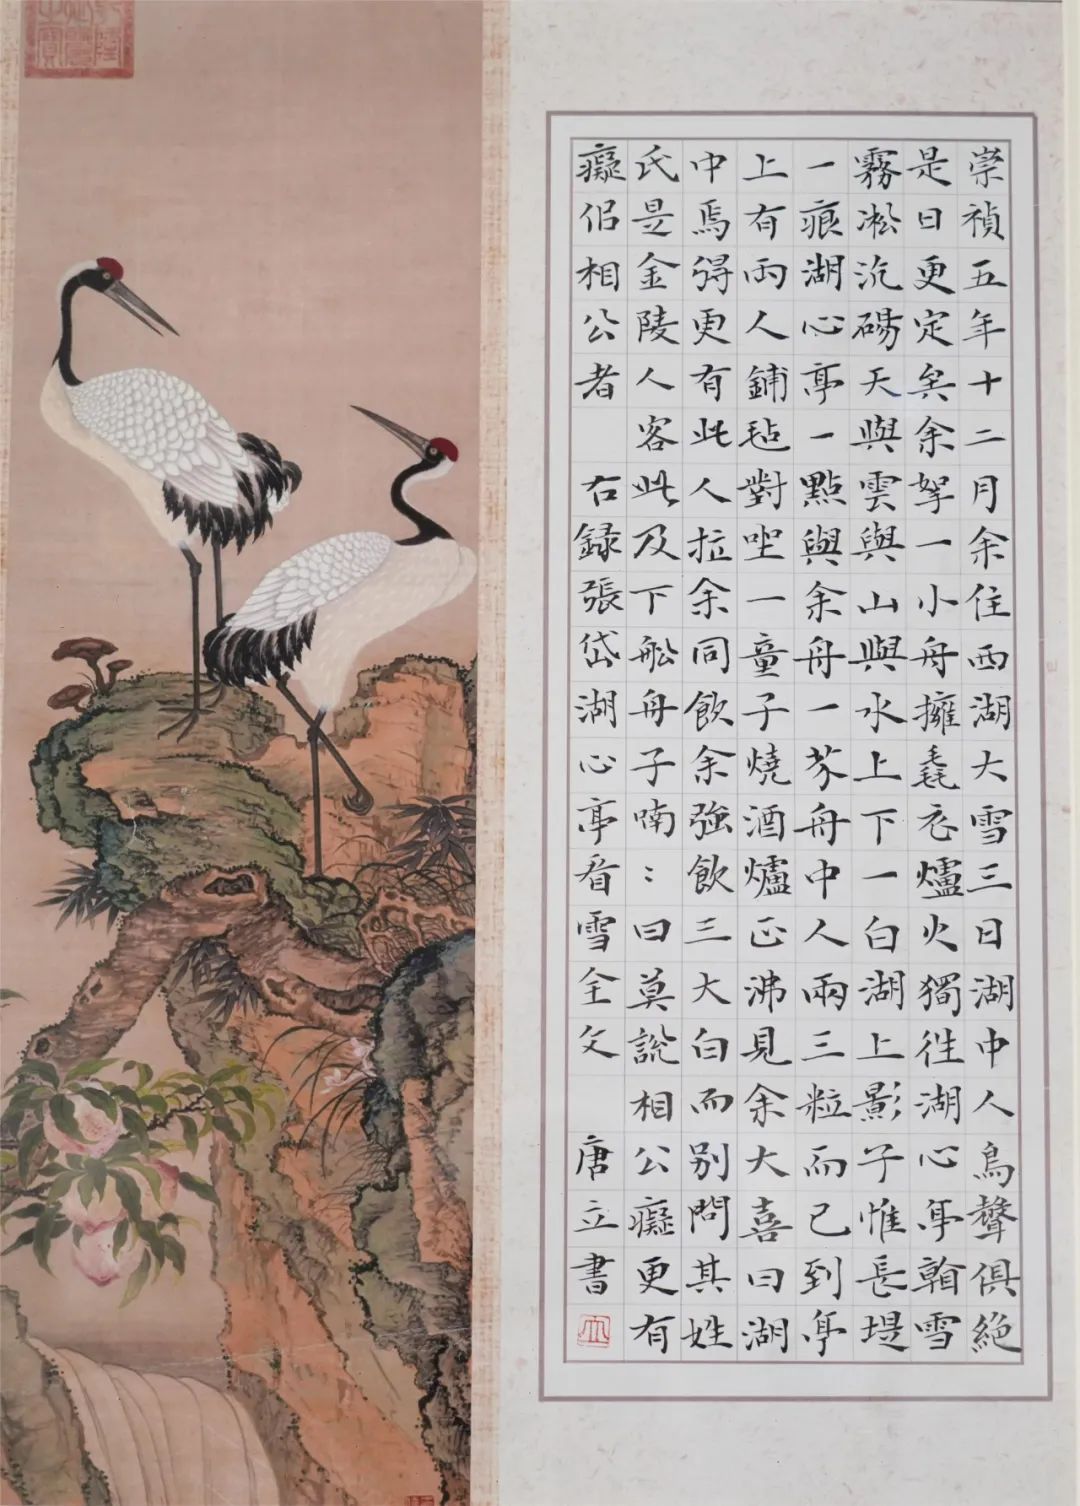 崇禎五年十二月余住西湖大雪三日湖中人鳥聲俱絶
是日更定矣余挐一小舟擁毳衣爐火獨往湖心亭看雪
霧凇沆碭天與雲與山與水上下一白湖上影子惟長堤
一痕湖心亭一點與余舟一芥舟中人兩三粒而已到亭
上有兩人鋪毡對坐一童子燒酒爐正沸見余大喜曰湖
中焉得更有此人拉余同飲余強飲三大白而別問其姓
氏是金陵人客此及下船舟子喃：曰莫說相公癡更有
癡佀相公者 右録張岱湖心亭看雪全文 唐立書
立